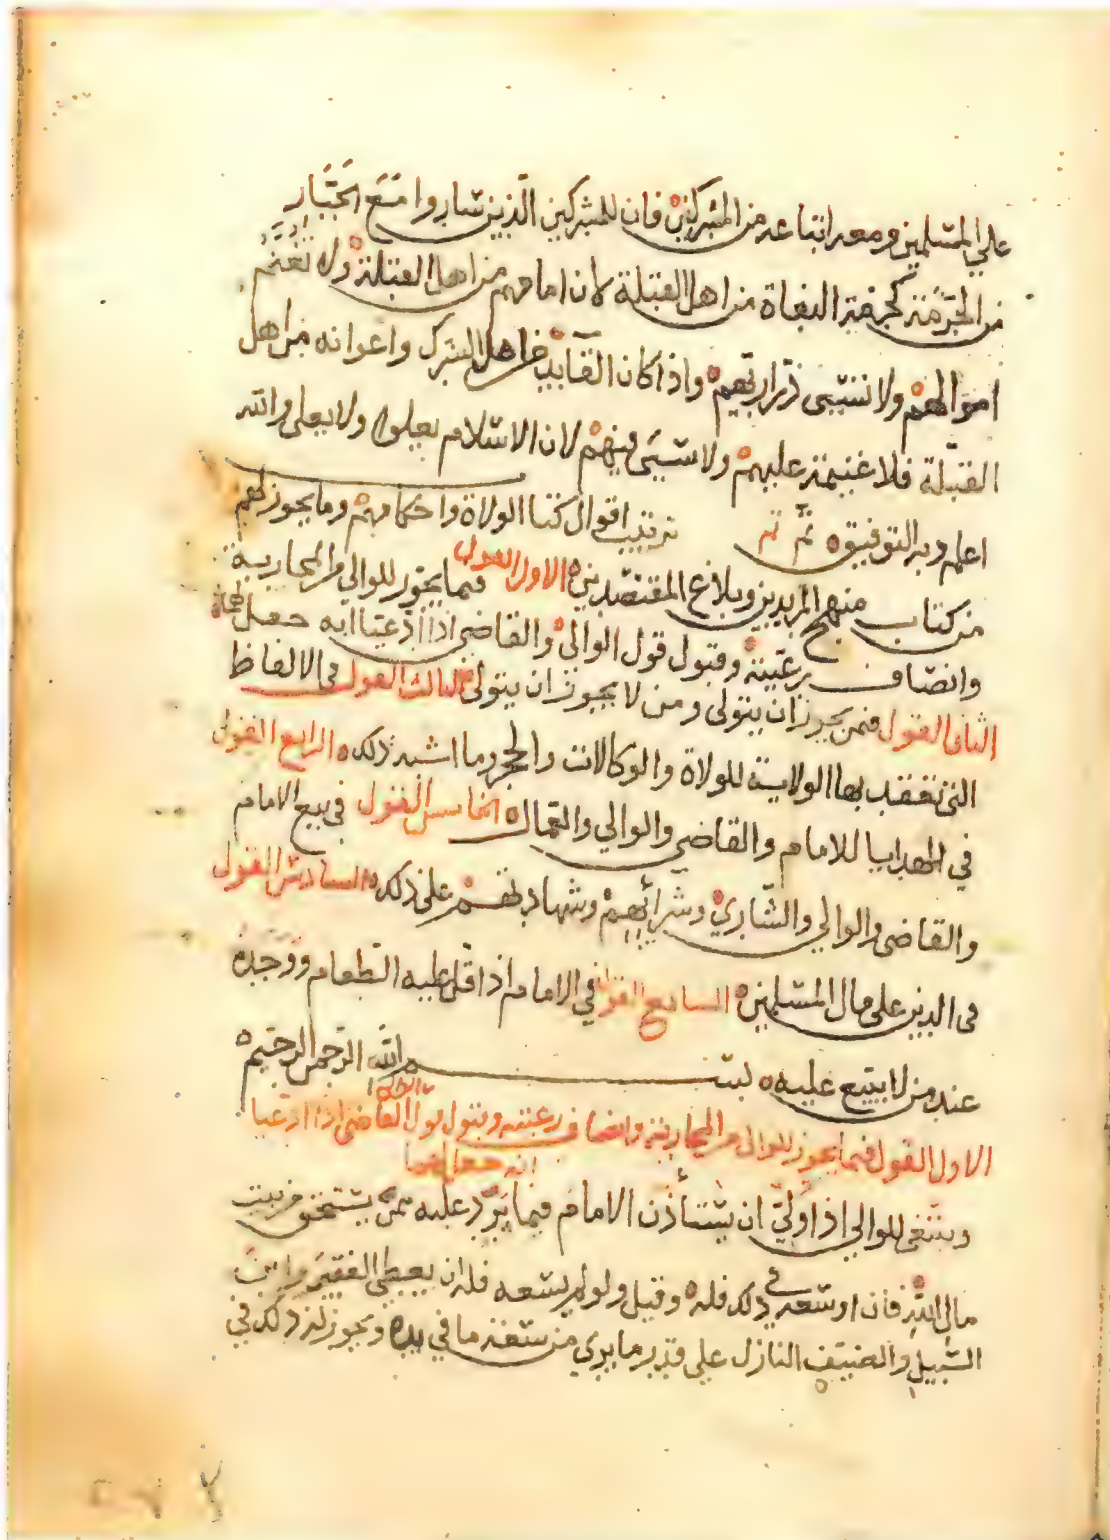 علي المسلمين ومعه اتباعه من المشركين فان للمشركين الذين ساروا مع الجبار
من الحرمة كحرمة البغاة من اهل القبلة لان امامهم من اهل القبلة ولا تغنم
اموالهم ولا تسبى ذراريهم واذا كان القايد من اهل الشرك واعوانه من اهل
القبلة فلا غنيمة عليهم ولا سبي فيهم لان الاسلام يعلوا ولا يعلى والله
اعلم وبه التوفيق تم تم ترتيب اقوال كتاب الولاة واحكامهم وما يجوز لهم
من كتاب منهج المريدين وبلاغ المقتصدين الاول القول فيما يجوز للوالي من المحاربة
وانصاف رعيته وقبول قول الوالي والقاضي اذا ادعيا انه جعل لهما
الثاني القول فمن يجوز ان يتولى ومن لا يجوز ان يتولى الثالث القول في الالفاظ
التي تنعقد بها الولاية للولاة والوكالات والحجر وما اشبه ذلك الرابع القول
في الهدايا للامام والقاضي والوالي والعمال الخامس القول في بيع الامام
والقاضي والوالي والشاري وشرائهم وشهادتهم على ذلك السادس القول
في الدين على مال المسلمين السابع القول في الامام اذا قل عليه الطعام ووجده
عند من لا يبيع عليه بسم الله الرحمن الرحيم
الاول القول فيما يجوز للوالي من المحاربة وانصاف رعيته وقبول قول القاضي اذا ادعيا
انه جعل لهما
وينبغي للوالي اذا ولي ان يستأذن الامام فيما يرد عليه ممن يستحق من بيت
مال الله فان اوسعه في ذلك فله وقيل ولو لم يسعه فله ان يعطي الفقير وابن
السبيل والضيف النازل علي قدر ما يرى من سعة ما في يده ويجوز له ذلك في